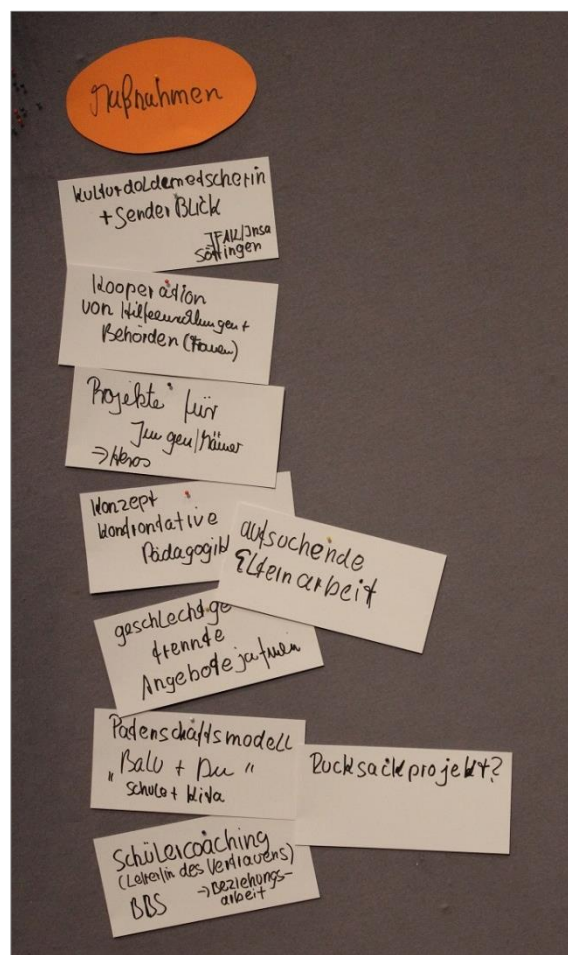 Maßnahmen
Kulturdoldemetscherin
+ Gender Blick
IFAK/Insa
Göttingen
Kooperation
von Hilfeeinrichtungen +
Behörden (Frauen)
Projekte für
Jungen/Männer
⇒ Heros
Konzept
Konfrontative
Pädagogik
aufsuchende
Elternarbeit
geschlechtge
trennte
Angebote
Patenschaftsmodell
"Balu + Du"
Schule + Kita
Rucksackprojekt?
Schülercoaching
(Lehrer/in des Vertrauens)
BBS → Beziehungs-
arbeit